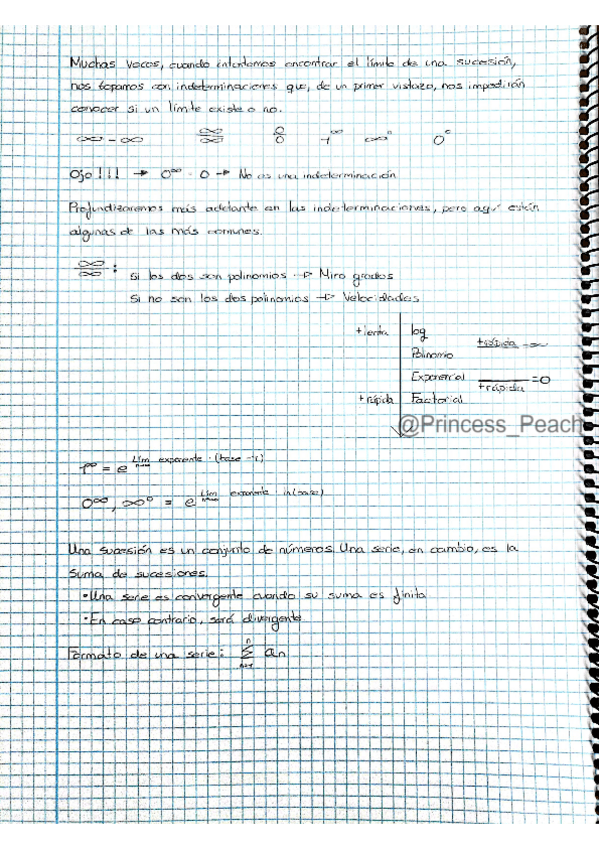 Muchas veces, cuando intentemos encontrar el límite de una sucesión,
nos topamos con indeterminaciones que, de un primer vistazo, nos impedirán
conocer si un límite existe o no.
∞-∞ ∞/∞ 0/0 1^∞ ∞^0 0^0
Ojo!!! → 0^∞ = 0 → No es una indeterminación
Profundizaremos más adelante en las indeterminaciones, pero aquí están
algunas de las más comunes.
∞/∞ :
Si los dos son polinomios → Miro grados
Si no son los dos polinomios → Velocidades
+ lenta log
+rápida = ∞
Polinomio
Exponencial
/+rápida = 0
+ rápida Factorial
@Princess_Peach
1^∞ = e^lím exponente · (base -1)
0^∞, ∞^0 = e^lím exponente ln(base)
Una sucesión es un conjunto de números. Una serie, en cambio, es la
suma de sucesiones.
• Una serie es convergente cuando su suma es finita
• En caso contrario, será divergente
Formato de una serie: Σ an